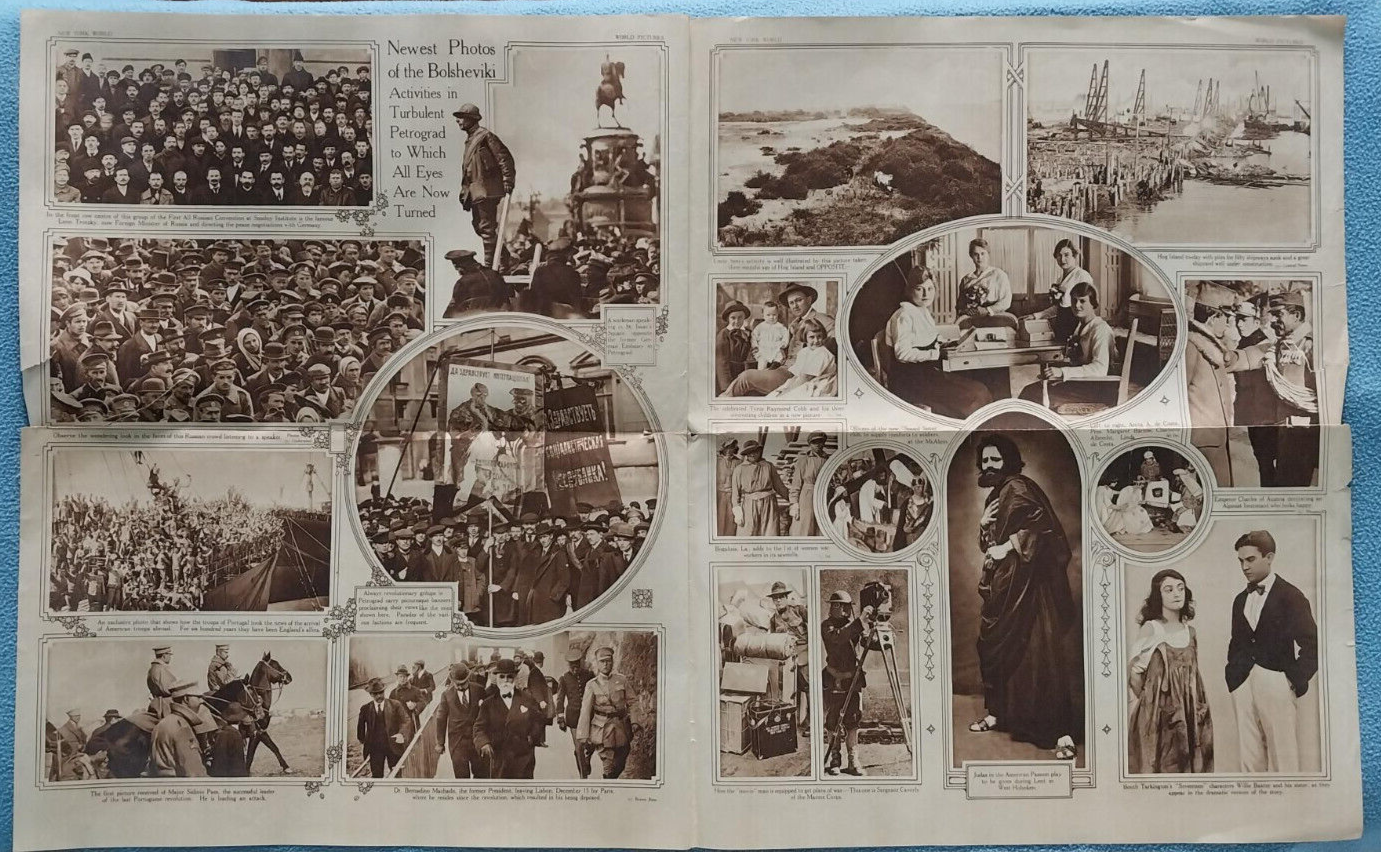 NEW YORK WORLD
WORLD PICTURES
Newest Photos
of the Bolsheviki
Activities in
Turbulent
Petrograd
to Which
All Eyes
Are Now
Turned
In the front row centre of this group of the First All Russian Convention at Smolny Institute is the famous
Leon Trotzky, now Foreign Minister of Russia and directing the peace negotiations with Germany.
A workman speak-
ing in St. Isaac's
Square, opposite
the former Ger-
man Embassy in
Petrograd.
Observe the wondering look in the faces of this Russian crowd listening to a speaker.
ДА ЗДРАВСТВУЕТ ИНТЕРНАЦІОНАЛ!
ЗДРАВСТВУЕТЪ
СОЦІАЛИСТИЧЕСКАЯ
РЕСПУБЛИКА!
Always revolutionary groups in
Petrograd carry picturesque banners
proclaiming their views like the ones
shown here. Parades of the vari-
ous factions are frequent.
An exclusive photo that shows how the troops of Portugal took the news of the arrival
of American troops abroad. For six hundred years they have been England's allies.
The first picture received of Major Sidonio Paes, the successful leader
of the last Portuguese revolution. He is leading an attack.
Dr. Bernardino Machado, the former President, leaving Lisbon, December 15 for Paris,
where he resides since the revolution, which resulted in his being deposed.
NEW YORK WORLD
WORLD PICTURES
Uncle Sam's activity is well illustrated by this picture taken
three months ago of Hog Island and OPPOSITE
Hog Island to-day with piles for fifty shipways sunk and a great
shipyard well under construction.
The celebrated Tyrus Raymond Cobb and his three
interesting children in a new picture.
at the McAlpin.
Emperor Charles of Austria decorating an
Bogalusa, La., adds to the list of women war
workers in its sawmills.
How the "movie" man is equipped to get plans of war—This one is Sergeant
of the Marine Corps.
Judas in the American Passion play
to be given during Lent in
West Hoboken.
Booth Tarkington's "Seventeen" characters Willie Baxter and his sister, as they
appear in the dramatic version of the story.